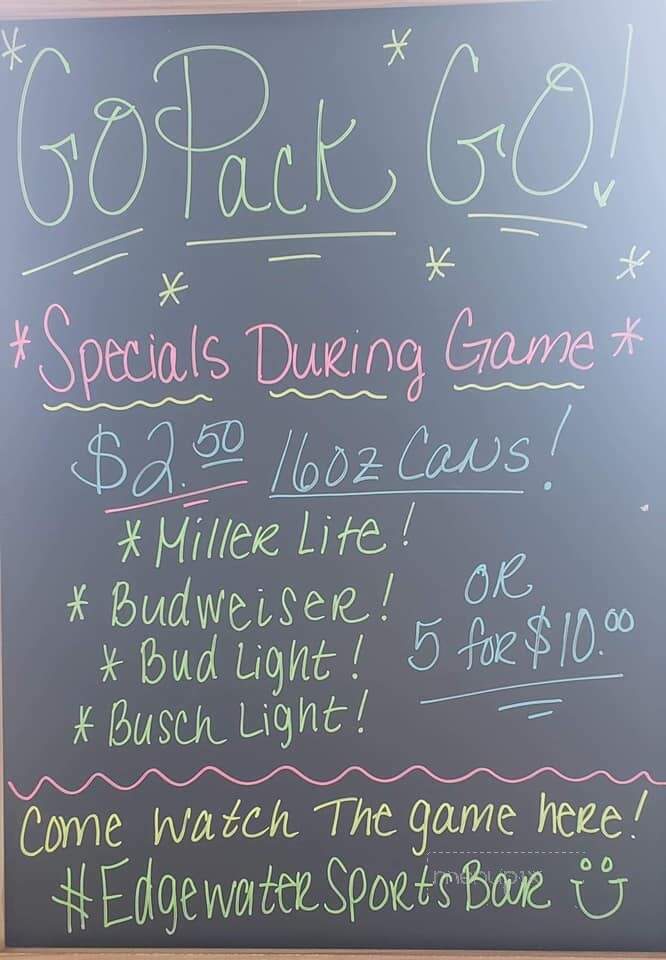 * GO Pack GO! *
* Specials During Game *
$2.50 16oz Cans!
* Miller Lite!
* Budweiser!
* Bud Light!
* Busch Light!
OR
5 for $10.00
Come Watch The game here!
#Edgewater Sports Bar
menupix